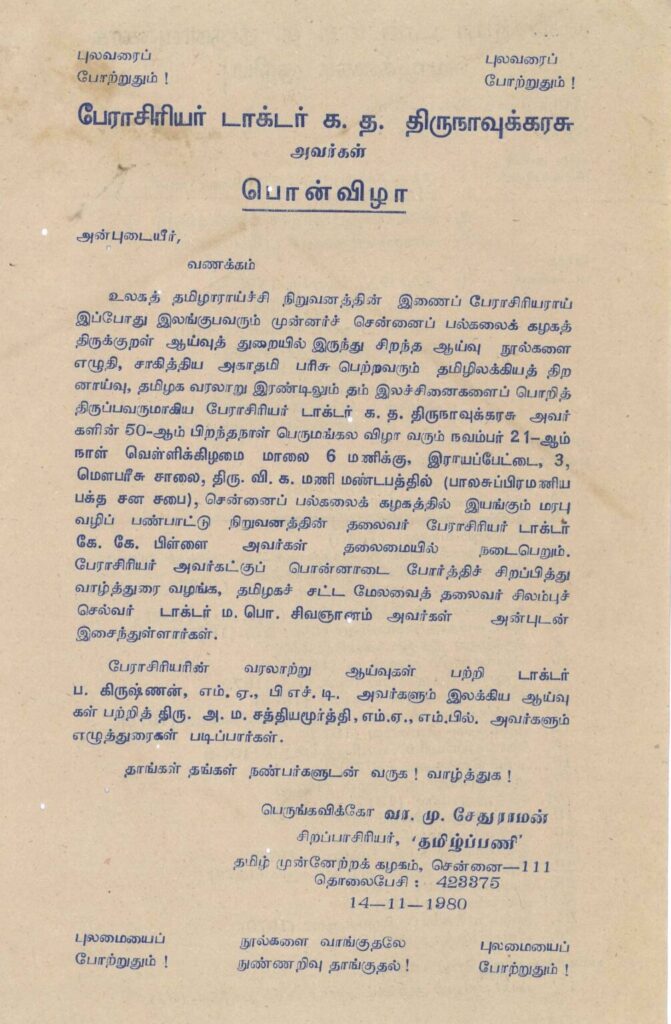 புலவரைப் புலவரைப்
போற்றுதும் ! போற்றுதும் !
பேராசிரியர் டாக்டர் க. த. திருநாவுக்கரசு
அவர்கள்
பொன்விழா
அன்புடையீர்,
வணக்கம்
உலகத் தமிழாராய்ச்சி நிறுவனத்தின் இணைப் பேராசிரியராய்
இப்போது இலங்குபவரும் முன்னர்ச் சென்னைப் பல்கலைக் கழகத்
திருக்குறள் ஆய்வுத் துறையில் இருந்து சிறந்த ஆய்வு நூல்களை
எழுதி, சாகித்திய அகாதமி பரிசு பெற்றவரும் தமிழிலக்கியத் திற
னாய்வு, தமிழக வரலாறு இரண்டிலும் தம் இலச்சினைகளைப் பொறித்
திருப்பவருமாகிய பேராசிரியர் டாக்டர் க. த. திருநாவுக்கரசு அவர்
களின் 50-ஆம் பிறந்தநாள் பெருமங்கல விழா வரும் நவம்பர் 21-ஆம்
நாள் வெள்ளிக்கிழமை மாலை 6 மணிக்கு, இராயப்பேட்டை, 3,
மௌபரீசு சாலை, திரு. வி. க. மணி மண்டபத்தில் (பாலசுப்பிரமணிய
பக்த சன சபை), சென்னைப் பல்கலைக் கழகத்தில் இயங்கும் மரபு
வழிப் பண்பாட்டு நிறுவனத்தின் தலைவர் பேராசிரியர் டாக்டர்
கே. கே. பிள்ளை அவர்கள் தலைமையில் நடைபெறும்.
பேராசிரியர் அவர்கட்குப் பொன்னாடை போர்த்திச் சிறப்பித்து
வாழ்த்துரை வழங்க, தமிழகச் சட்ட மேலவைத் தலைவர் சிலம்புச்
செல்வர் டாக்டர் ம. பொ. சிவஞானம் அவர்கள் அன்புடன்
இசைந்துள்ளார்கள்.
பேராசிரியரின் வரலாற்று ஆய்வுகள் பற்றி டாக்டர்
ப. கிருஷ்ணன், எம். ஏ., பி எச். டி. அவர்களும் இலக்கிய ஆய்வு
கள் பற்றித் திரு. அ. ம. சத்தியமூர்த்தி, எம்.ஏ., எம்.பில். அவர்களும்
எழுத்துரைகள் படிப்பார்கள்.
தாங்கள் தங்கள் நண்பர்களுடன் வருக ! வாழ்த்துக !
பெருங்கவிக்கோ வா. மு. சேதுராமன்
சிறப்பாசிரியர், ‘தமிழ்ப்பணி’
தமிழ் முன்னேற்றக் கழகம், சென்னை—111
தொலைபேசி : 423375
14—11—1980
புலமையைப் நூல்களை வாங்குதலே புலமையைப்
போற்றுதும் ! நுண்ணறிவு தாங்குதல் ! போற்றுதும் !